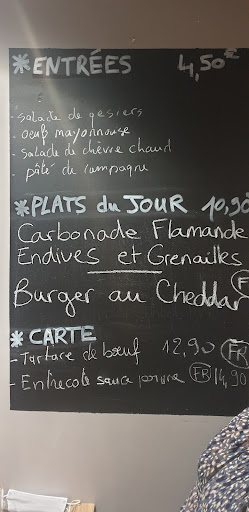 *ENTRÉES 4,50€
- Salade de gesiers
- oeuf mayonnouse
- Salade de chèvre chaud
- pâté de campagne
*PLATS du JOUR 10,90
Carbonade Flamande
Endives et Grenailles
Burger au Cheddar F
* CARTE
- Tartare de bœuf 12,90 FR
- Entrecote sauce poivre FR 14,90